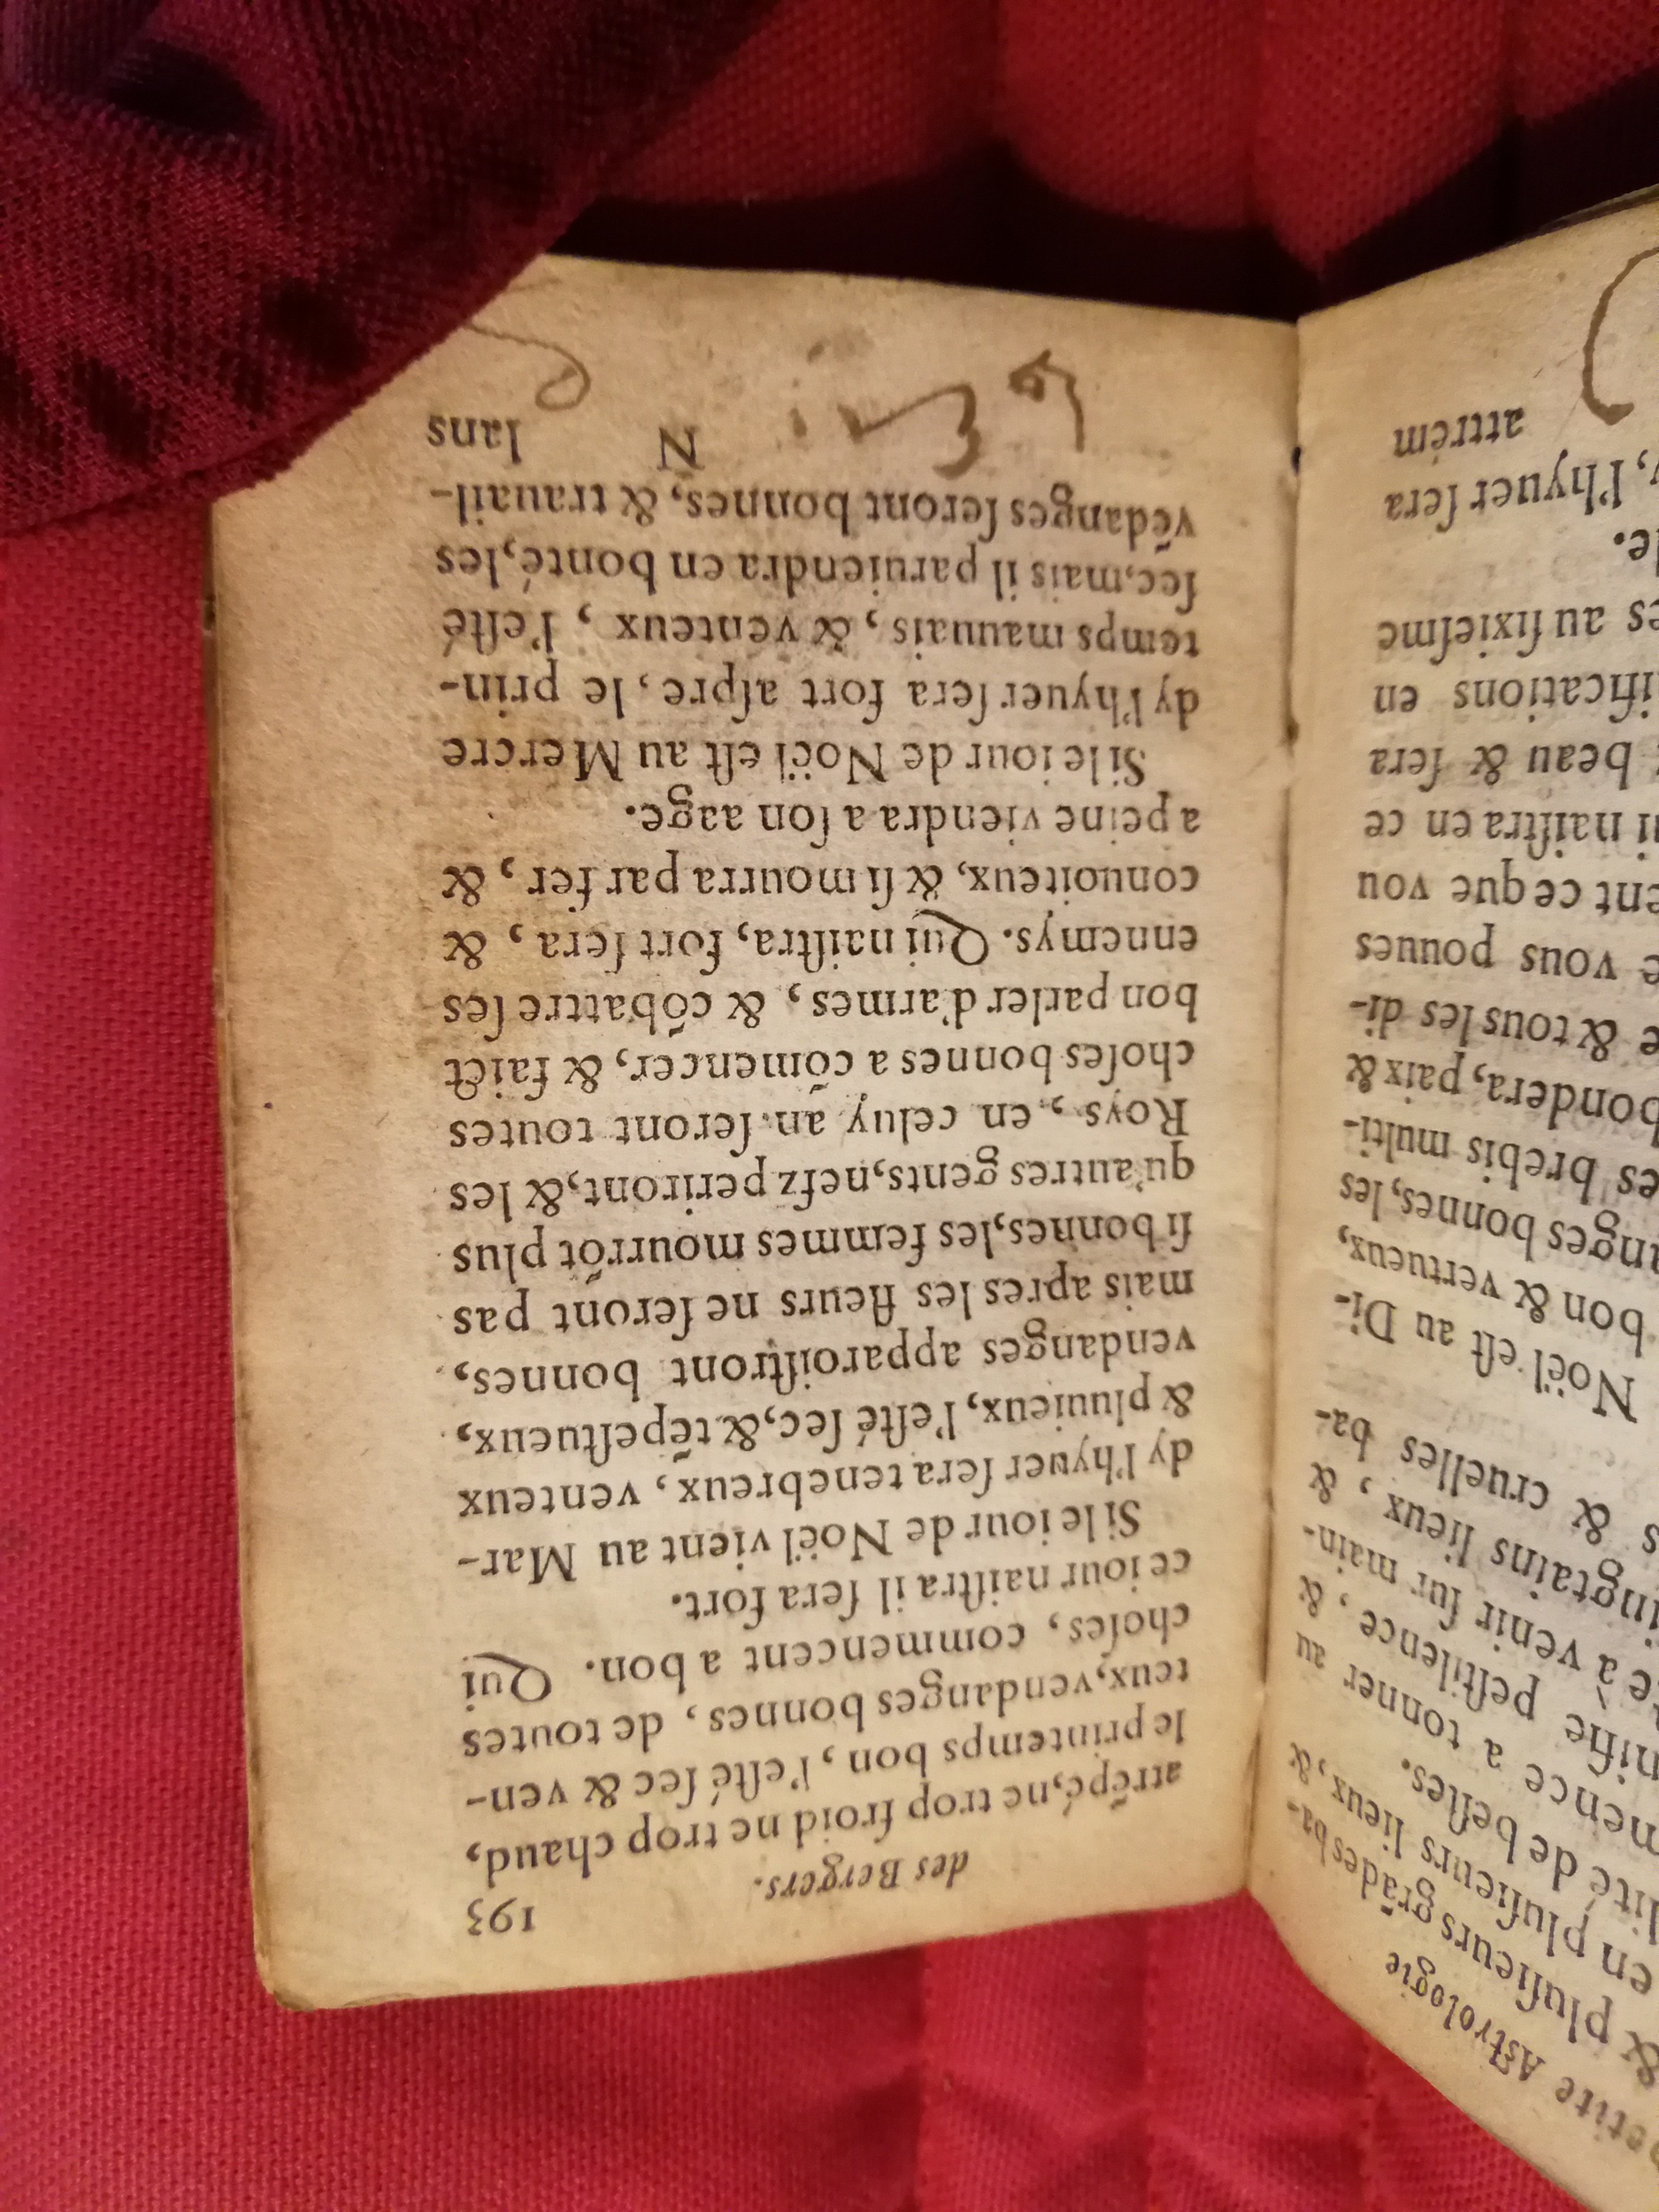 Aſtrologie
& pluſieurs grādes ba-
en pluſieurs lieux, &
de beſtes.
a tonner au
peſtilence, &
à venir ſur main-
lieux, &
& cruelles ba-
Noël eſt au Di-
bon & vertueux,
bonnes, les
brebis multi-
paix &
& tous les di-
vous pouues
ce que vou
naiſtra en ce
beau & ſera
en
au ſixieſme
l'hyuer ſera
attrém
des Bergers. 193
atrēpé, ne trop froid ne trop chaud,
le printemps bon, l'eſté ſec & ven-
teux, vendanges bonnes, de toutes
choſes, commencent a bon. Qui
ce iour naiſtra il ſera fort.
Si le iour de Noël vient au Mar-
dy l'hyuer ſera tenebreux, venteux
& pluuieux, l'eſté ſec, & tēpeſtueux,
vendanges apparoiſtront bonnes,
mais apres les fleurs ne ſeront pas
ſi bonnes, les femmes mourrōt plus
qu'autres gents, nefz periront, & les
Roys, en celuy an ſeront toutes
choſes bonnes a cōmencer, & faict
bon parler d'armes, & cōbattre ſes
ennemys. Qui naiſtra, fort ſera, &
conuoiteux, & ſi mourra par fer, &
a peine viendra a ſon aage.
Si le iour de Noël eſt au Mercre
dy l'hyuer ſera fort aſpre, le prin-
temps mauuais, & venteux, l'eſté
ſec, mais il paruiendra en bonté, les
vēdanges ſeront bonnes, & trauail-
N lans